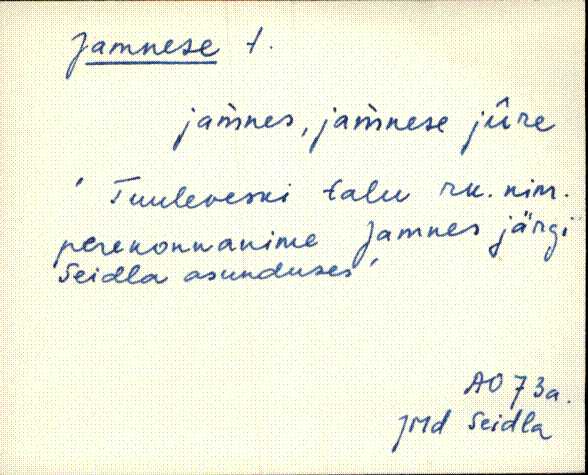 Jamnese t.
jam̀nes, jam̀nese jûre
' Tuuleveski talu rk. nim.
perekonnanime Jamnes järgi
Seidla asunduses '
AO 73a.
JMd Seidla